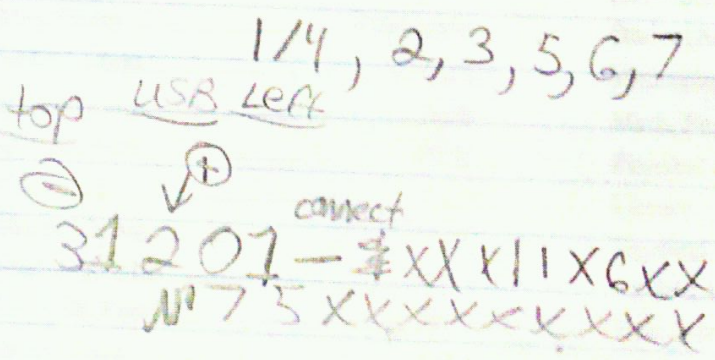 1/4, 2, 3, 5, 6, 7
top USB Left
- +
connect
31201 - XXX11X6XX
75XXXXXXXXX